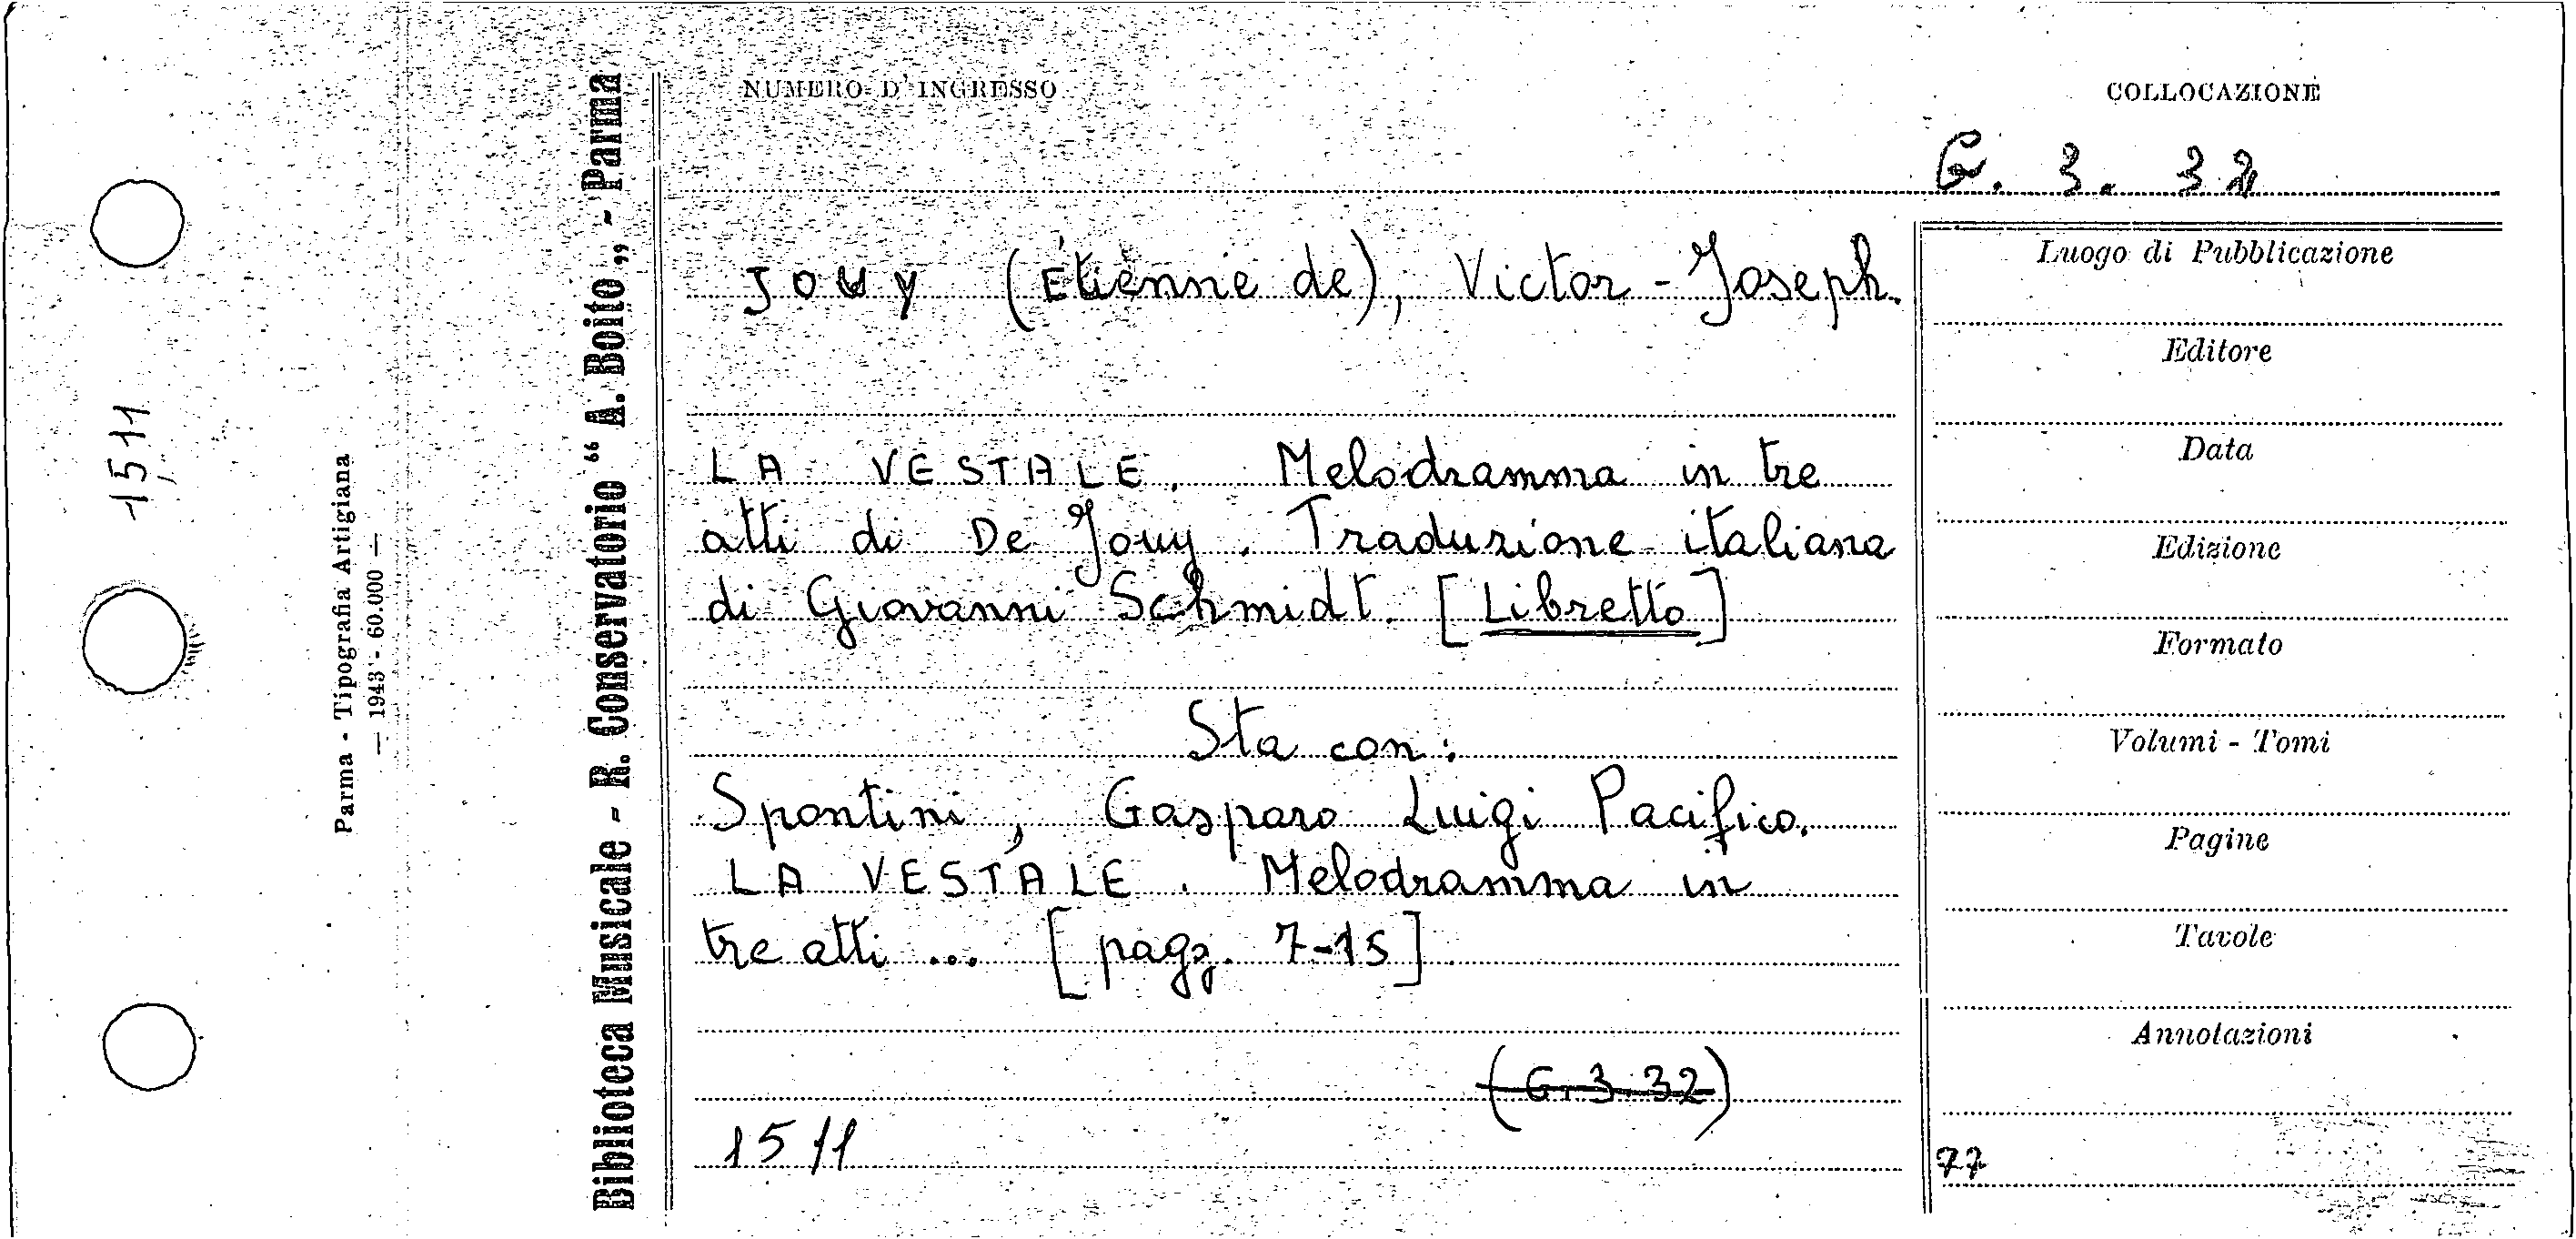 NUMERO D'INGRESSO
COLLOCAZIONE
G. 3. 32
JOUY (Étienne de), Victor-Joseph.
LA VESTALE. Melodramma in tre
atti di De Jouy. Traduzione italiana
di Giovanni Schmidt. [Libretto]
Sta con:
Spontini, Gasparo Luigi Pacifico.
LA VESTALE. Melodramma in
tre atti ... [pagg. 7-15]
(G. 3. 32)
1511
Luogo di Pubblicazione
Editore
Data
Edizione
Formato
Volumi - Tomi
Pagine
Tavole
Annotazioni
77
Biblioteca Musicale - R. Conservatorio “ A. Boito „ - Parma
Parma - Tipografia Artigiana
— 1943 - 60.000 —
1511